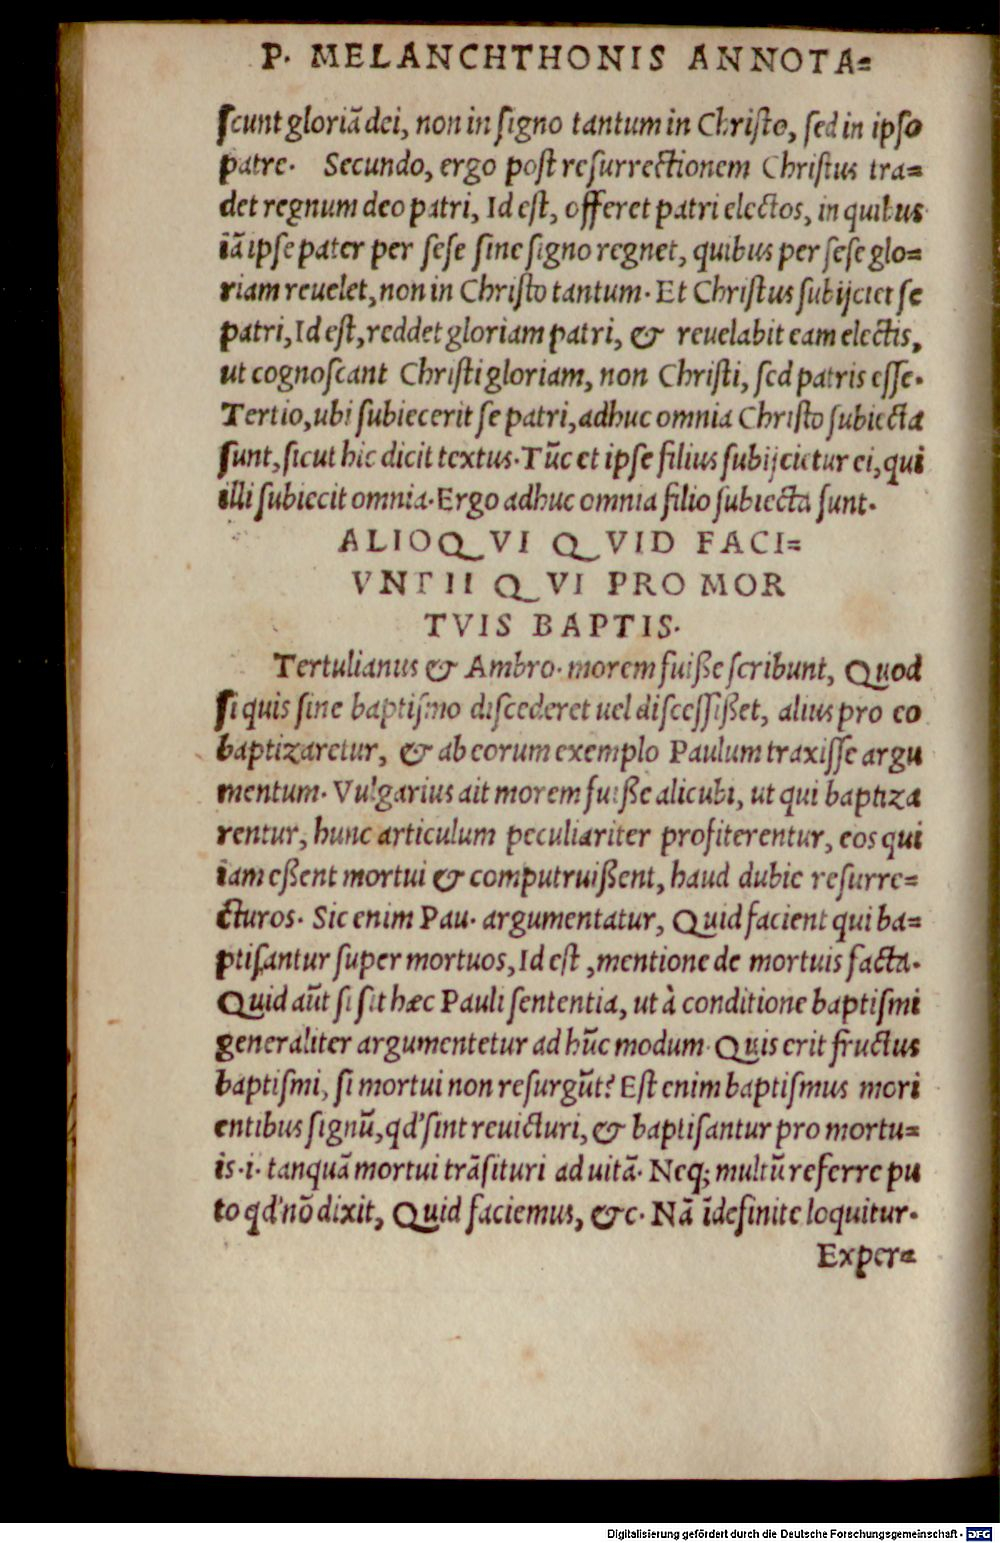 P. MELANCHTHONIS ANNOTA=
ſcunt gloriã dei, non in ſigno tantum in Chriſto, ſed in ipſo
patre. Secundo, ergo poſt reſurrectionem Chriſtus tra=
det regnum deo patri, Id eſt, offeret patri electos, in quibus
iã ipſe pater per ſeſe ſine ſigno regnet, quibus per ſeſe glo=
riam reuelet, non in Chriſto tantum. Et Chriſtus ſubijciet ſe
patri, Id eſt, reddet gloriam patri, & reuelabit eam electis,
ut cognoſcant Chriſti gloriam, non Chriſti, ſed patris eſſe.
Tertio, ubi ſubiecerit ſe patri, adhuc omnia Chriſto ſubiecta
ſunt, ſicut hic dicit textus. Tũc et ipſe filius ſubijcietur ei, qui
illi ſubiecit omnia. Ergo adhuc omnia filio ſubiecta ſunt.
ALIOQVI QVID FACI=
VNT II QVI PRO MOR
TVIS BAPTIS.
Tertulianus & Ambro. morem fuiße ſcribunt, Quod
ſi quis ſine baptiſmo diſcederet uel diſceſſißet, alius pro eo
baptizaretur, & ab eorum exemplo Paulum traxiſſe argu
mentum. Vulgarius ait morem fuiße alicubi, ut qui baptiza
rentur, hunc articulum peculiariter profiterentur, eos qui
iam eßent mortui & computruißent, haud dubie reſurre=
cturos. Sic enim Pau. argumentatur, Quid facient qui ba=
ptiſantur ſuper mortuos, Id eſt, mentione de mortuis facta.
Quid aũt ſi ſit hæc Pauli ſententia, ut à conditione baptiſmi
generaliter argumentetur ad hũc modum. Quis erit fructus
baptiſmi, ſi mortui non reſurgũt? Eſt enim baptiſmus mori
entibus ſignũ, qd' ſint reuicturi, & baptiſantur pro mortu=
is .i. tanquã mortui trãſituri ad uitã. Neq; multũ referre pu
to qd' nõ dixit, Quid faciemus, &c. Nã ĩdefinite loquitur.
Exper=
Digitalisierung gefördert durch die Deutsche Forschungsgemeinschaft - DFG